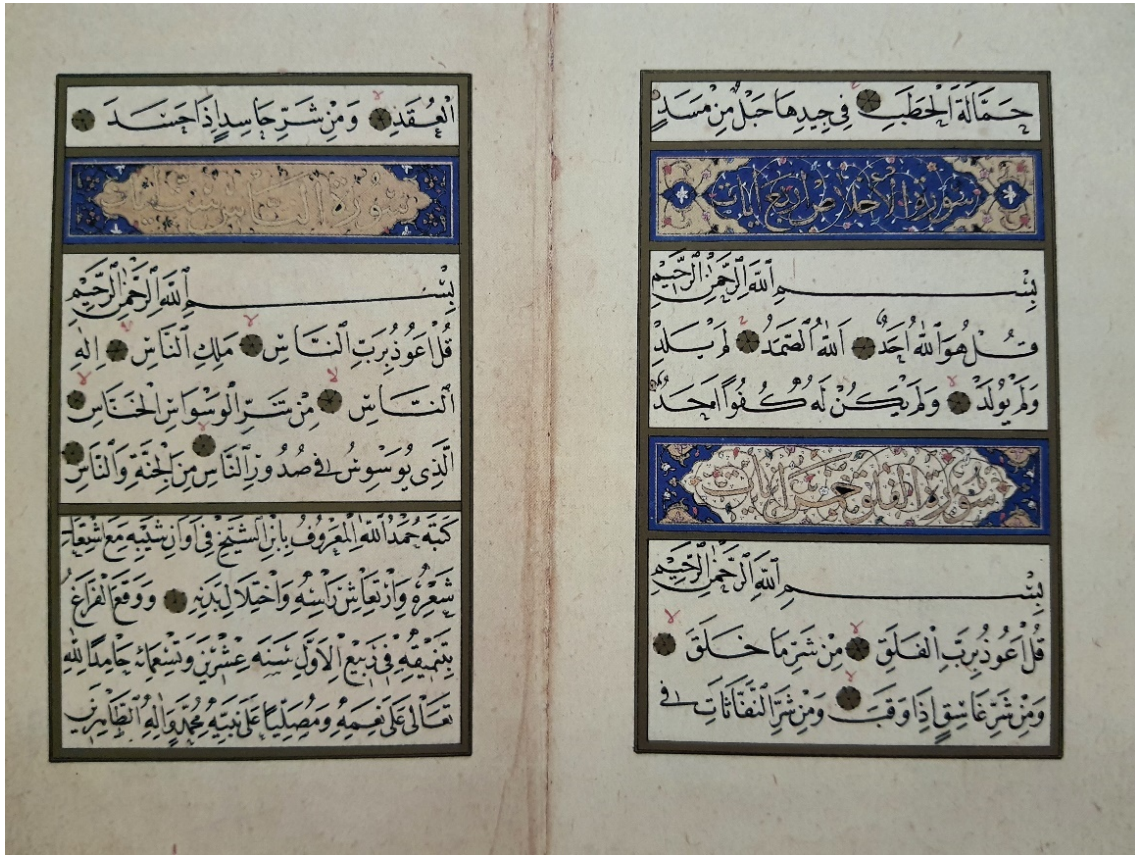 حَمَّالَةَ الْحَطَبِ فِي جِيدِهَا حَبْلٌ مِنْ مَسَدٍ
سورة الاخلاص اربع ايات
بِسْمِ اللَّهِ الرَّحْمٰنِ الرَّحِيمِ
قُلْ هُوَ اللَّهُ اَحَدٌ اَللَّهُ الصَّمَدُ لَمْ يَلِدْ
وَلَمْ يُولَدْ وَلَمْ يَكُنْ لَهُ كُفُوًا اَحَدٌ
سورة الفلق خمس ايات
بِسْمِ اللَّهِ الرَّحْمٰنِ الرَّحِيمِ
قُلْ اَعُوذُ بِرَبِّ الْفَلَقِ مِنْ شَرِّ مَا خَلَقَ
وَمِنْ شَرِّ غَاسِقٍ اِذَا وَقَبَ وَمِنْ شَرِّ النَّفَّاثَاتِ فِي
الْعُقَدِ وَمِنْ شَرِّ حَاسِدٍ اِذَا حَسَدَ
سورة الناس ست ايات
بِسْمِ اللَّهِ الرَّحْمٰنِ الرَّحِيمِ
قُلْ اَعُوذُ بِرَبِّ النَّاسِ مَلِكِ النَّاسِ اِلٰهِ
النَّاسِ مِنْ شَرِّ الْوَسْوَاسِ الْخَنَّاسِ
الَّذِي يُوَسْوِسُ فِي صُدُورِ النَّاسِ مِنَ الْجِنَّةِ وَالنَّاسِ
كَتَبَهُ حَمْدُ اللَّهِ الْمَعْرُوفُ بِابْنِ الشَّيْخِ فِي اَوَانِ شَيْبِهِ مَعَ
شَعْرِهِ وَارْتِعَاشِ رَاْسِهِ وَاخْتِلَالِ بَدَنِهِ وَوَقَعَ الْفَرَاغُ
بِتَنْمِيقِهِ فِي رَبِيعِ الْاَوَّلِ سَنَةِ عِشْرِينَ وَتِسْعِمِائَةٍ حَامِدًا لِلَّهِ
تَعَالَى عَلَى نِعَمِهِ وَمُصَلِّيًا عَلَى نَبِيِّهِ مُحَمَّدٍ وَاٰلِهِ الطَّاهِرِينَ